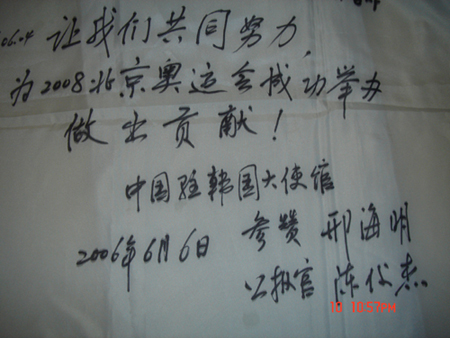 06.04 让我们共同努力,
为2008北京奥运会成功举办
做出贡献!
中国驻韩国大使馆
参赞 邢海明
2006年6月6日
公报官 陈俊杰
10 10:57PM